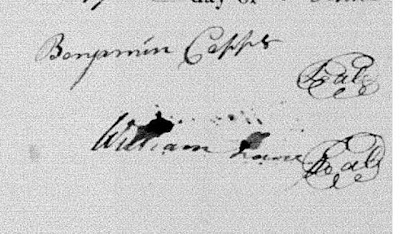 day of
Benjamin Capps
Seal
William Lane Seal